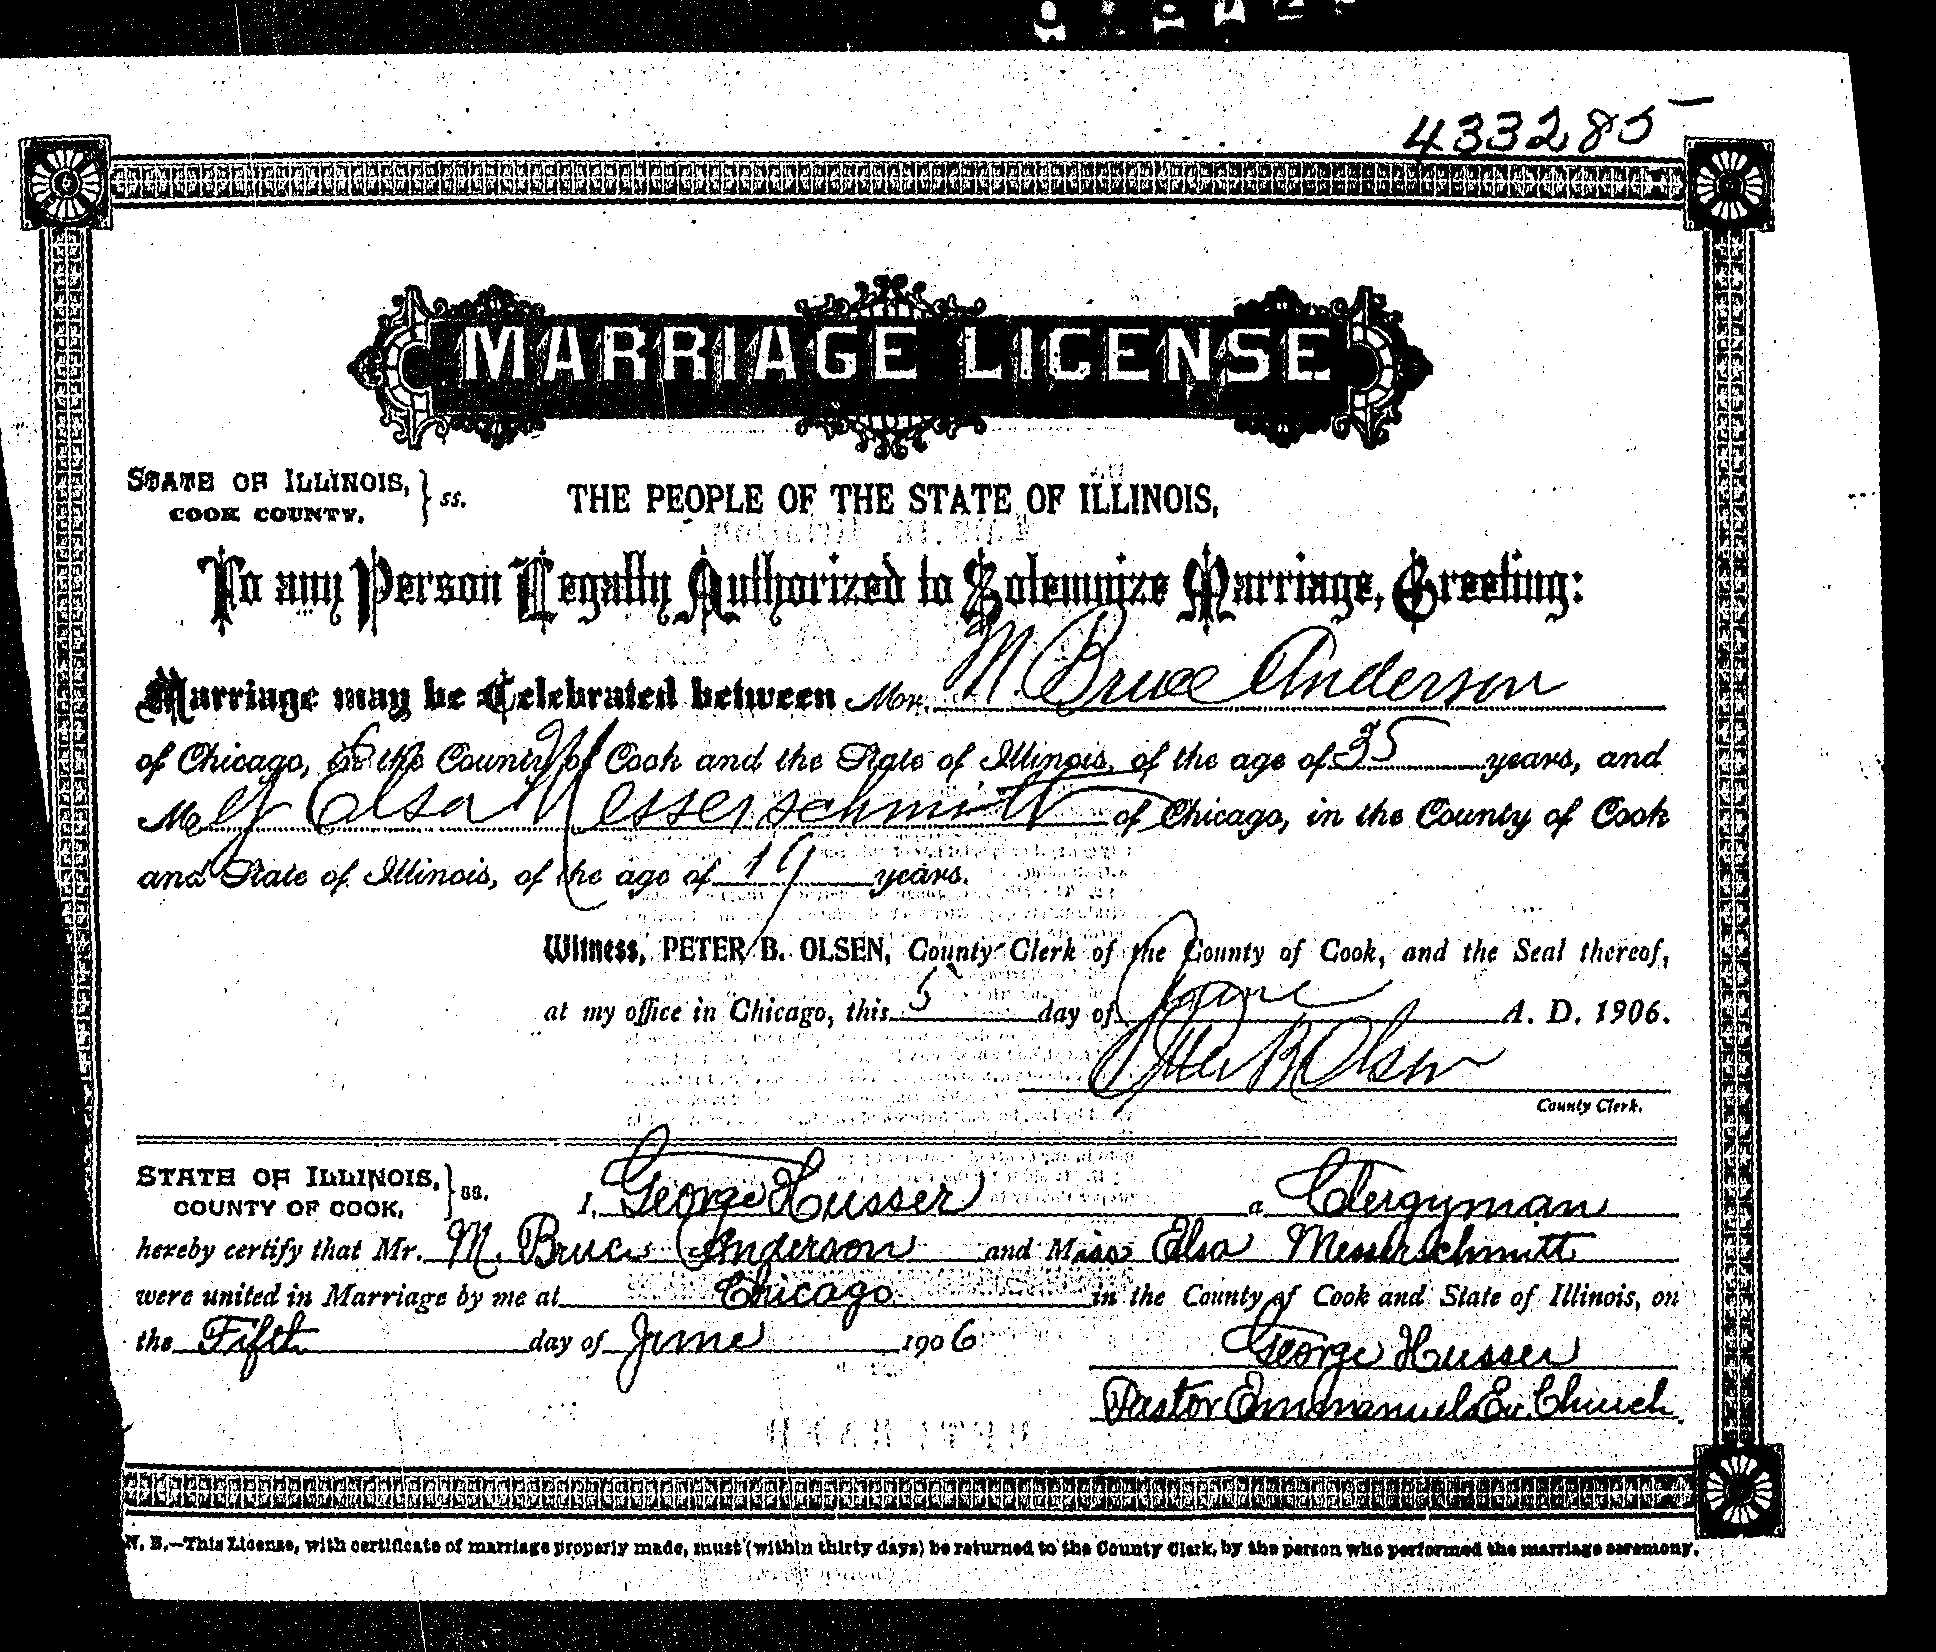 433285
MARRIAGE LICENSE
STATE OF ILLINOIS, } ss.
COOK COUNTY.
THE PEOPLE OF THE STATE OF ILLINOIS,
To any Person Legally Authorized to Solemnize Marriage, Greeting:
Marriage may be Celebrated between Mr. M. Bruce Anderson
of Chicago, in the County of Cook and the State of Illinois, of the age of 35 years, and
M Elsa Messerschmitt of Chicago, in the County of Cook
and State of Illinois, of the age of 19 years.
Witness, PETER B. OLSEN, County Clerk of the County of Cook, and the Seal thereof,
at my office in Chicago, this 5 day of June A. D. 1906.
Peter B Olsen
County Clerk.
STATE OF ILLINOIS, } ss.
COUNTY OF COOK.
I, George Husser a Clergyman
hereby certify that Mr. M. Bruce Anderson and Miss Elsa Messerschmitt
were united in Marriage by me at Chicago in the County of Cook and State of Illinois, on
the Fifth day of June 1906
George Husser
Pastor Emmanuels Ev. Church
N. B.—This License, with certificate of marriage properly made, must (within thirty days) be returned to the County Clerk, by the person who performed the marriage ceremony.